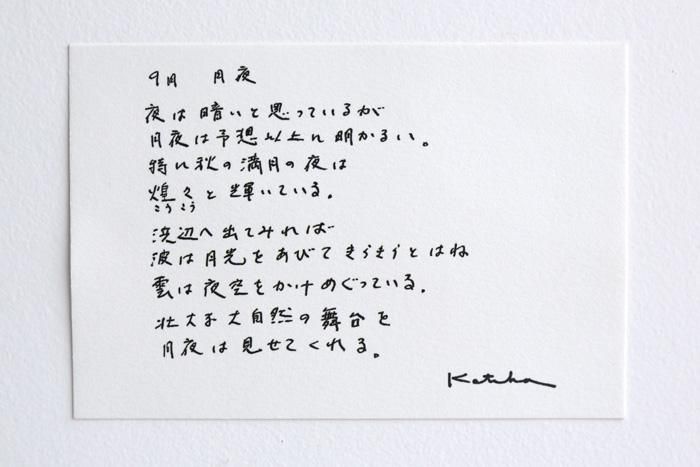 9月 月夜
夜は暗いと思っているが
月夜は予想以上に明かるい。
特に秋の満月の夜は
煌々と輝いている。
こうこう
浜辺へ出てみれば
波は月光をあびてきらきらとはね
雲は夜空をかけめぐっている。
壮大な大自然の舞台を
月夜は見せてくれる。